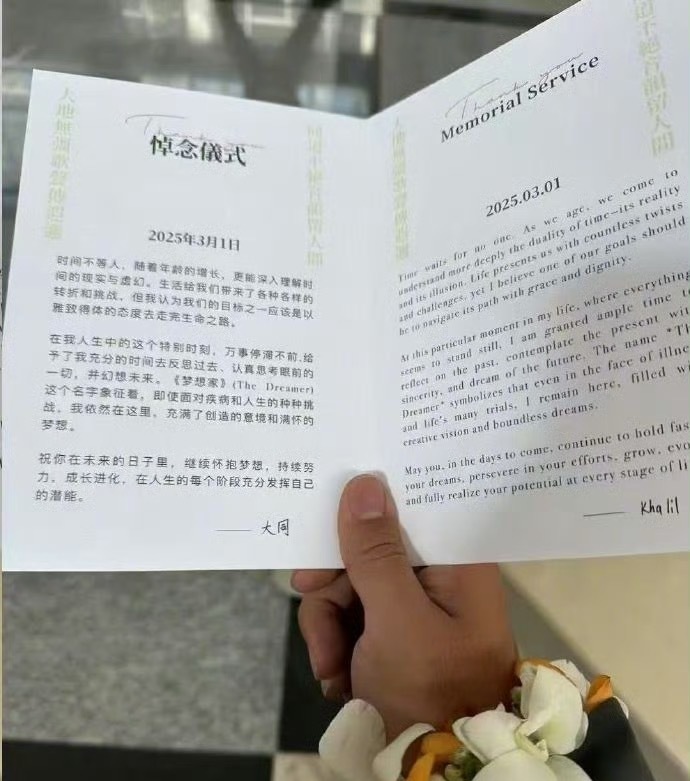 Thank you
悼念儀式
2025年3月1日
时间不等人，随着年龄的增长，更能深入理解时
间的现实与虚幻。生活给我们带来了各种各样的
转折和挑战，但我认为我们的目标之一应该是以
雅致得体的态度去走完生命之路。
在我人生中的这个特别时刻，万事停滞不前,给
予了我充分的时间去反思过去、认真思考眼前的
一切，并幻想未来。《梦想家》(The Dreamer)
这个名字象征着，即使面对疾病和人生的种种挑
战，我依然在这里，充满了创造的意境和满怀的
梦想。
祝你在未来的日子里，继续怀抱梦想，持续努
力，成长进化，在人生的每个阶段充分发挥自己
的潜能。
—— 大同
Thank you
Memorial Service
2025.03.01
Time waits for no one. As we age, we come to
understand more deeply the duality of time—its reality
and its illusion. Life presents us with countless twists
and challenges, yet I believe one of our goals should
be to navigate its path with grace and dignity.
At this particular moment in my life, where everything
seems to stand still, I am granted ample time to
reflect on the past, contemplate the present with
sincerity, and dream of the future. The name "Th
Dreamer" symbolizes that even in the face of illnes
and life's many trials, I remain here, filled wi
creative vision and boundless dreams.
May you, in the days to come, continue to hold fas
your dreams, persevere in your efforts, grow, evo
and fully realize your potential at every stage of li
—— Khalil